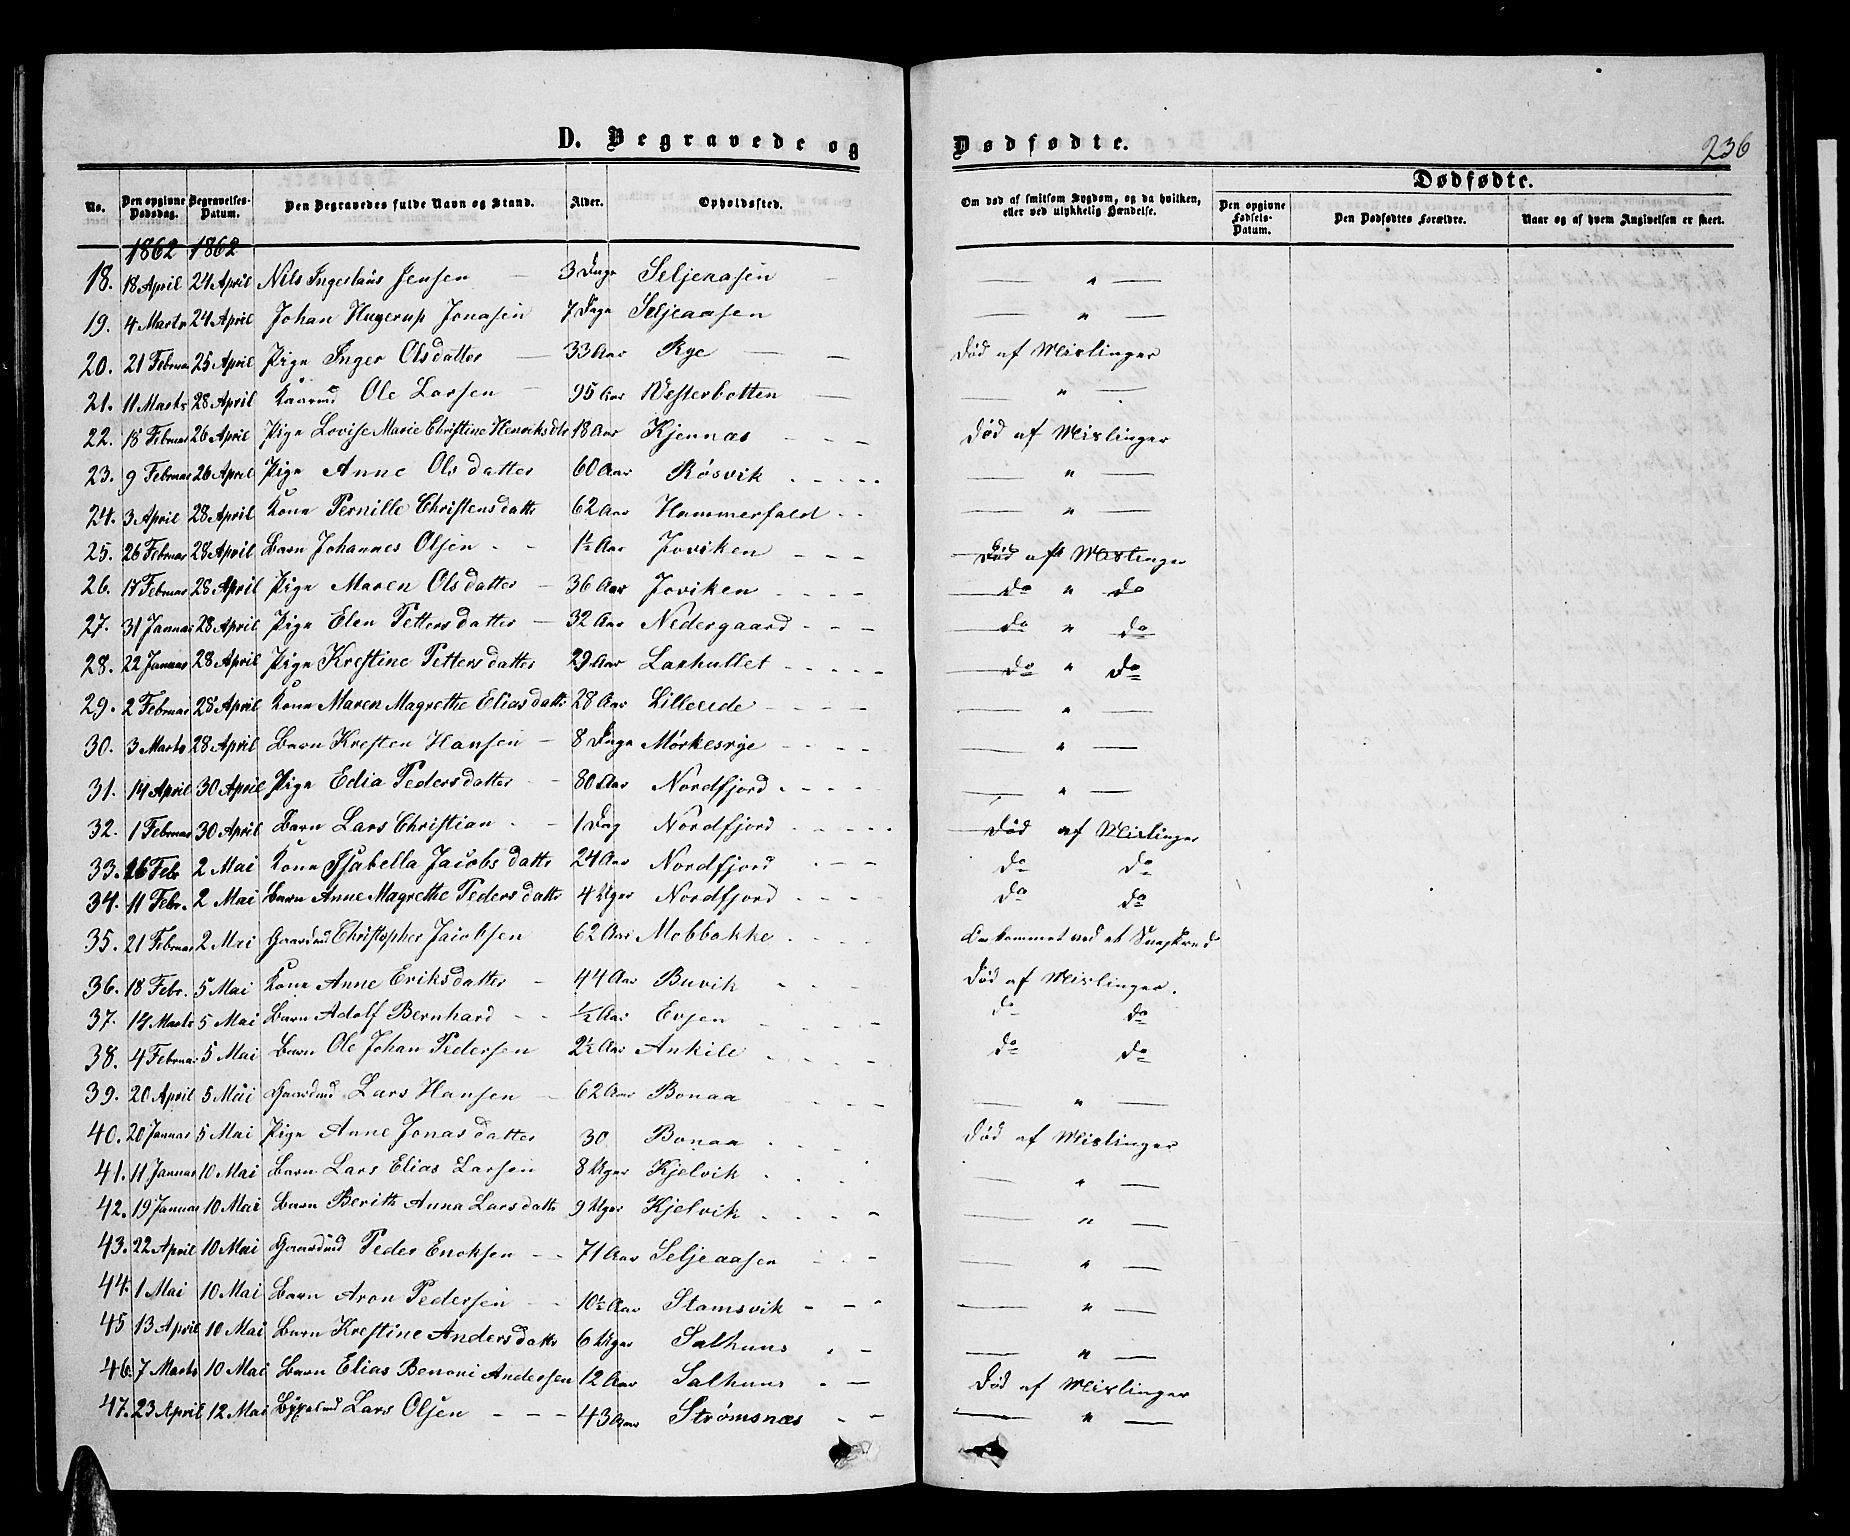 D. Begravede og Dødfødte.
236
No.
Den opgivne Dødsdag.
Begravelses-Datum.
Den Begravedes fulde Navn og Stand.
Alder.
Opholdssted.
Om død af smitsom Sygdom, og da hvilken, eller ved ulykkelig Hændelse.
Dødfødte.
Den opgivne Fødsels-Datum.
Den Dødfødtes Forældre.
Naar og af hvem Angivelsen er skeet.
1862 1862
18. 18 April 24 April Nils Jensen — 3 Dage Seljeaasen — — " —
19. 4 Marts 24 April Johan Hagerup Jonasen 7 Dage Seljeaasen — " —
20. 21 Februar 25 April Pige Inger Olsdatter — 33 Aar Rye — — Død af Mislinger
21. 11 Marts 28 April Ole Larsen — 95 Aar Vesterbotten — — " —
22. 18 Februar 26 April Pige Lovise Marie Christine Henriksdtr 18 Aar Kjennæs - - — Død af Mislinger
23. 9 Februar 26 April Pige Anne Olsdatter 60 Aar Røsvik - - - - - — " —
24. 3 April 28 April Kone Pernille Christensdatter 62 Aar Hammerfald - - — " —
25. 26 Februar 28 April Barn Johannes Olsen - - 1½ Aar Joviken - - - Død af Mislinger
26. 17 Februar 28 April Pige Maren Olsdatter — 36 Aar Joviken - - - - do " do
27. 31 Januar 28 April Pige Elen Pettersdatter — 32 Aar Nedergaard - - - do " do
28. 22 Januar 28 April Pige Krestine Pettersdatter 29 Aar Laxhullet - - - - do " do
29. 2 Februar 28 April Kone Maren Magrethe Eliasdatter 28 Aar Lillereide - - - - — " —
30. 3 Marts 28 April Barn Kresten Hansen — 8 Dage Mørkesrye - - - - — " —
31. 14 April 30 April Pige Edia Pedersdatter - - 80 Aar Nordfjord - - - - — " —
32. 1 Februar 30 April Barn Lars Christian - - 1 Dag Nordfjord - - - - - Død af Mislinger
33. 26 Febr 2 Mai Kone Isabella Jacobsdatter 24 Aar Nordfjord - - - do do
34. 11 Febr. 2 Mai Barn Anne Magrethe Pedersdatter 4 Uger Nordfjord - - - - do do
35. 21 Februar 2 Mai Gaardmd Christopher Jacobsen 62 Aar Mebbakke - - - - Omkommet ved et Sneeskred
36. 18 Febr. 5 Mai Kone Anne Eriksdatter - 44 Aar Buvik - - - Død af Mislinger.
37. 14 Marts 5 Mai Barn Adolf Bernhard - - ½ Aar Evjen - - - - do do
38. 4 Februar 5 Mai Barn Ole Johan Pedersen 2½ Aar Ankile - - - - do do
39. 20 April 5 Mai Gaardmd Lars Hansen — 62 Aar Bonaa - - - — " —
40. 20 Januar 5 Mai Pige Anne Jonasdatter 30 Bonaa - - - Død af Mislinger
41. 11 Januar 10 Mai Barn Lars Elias Larsen 8 Uger Kjelvik - - - — " —
42. 19 Januar 10 Mai Barn Berith Anna Larsdatter 9 Uger Kjelvik - - - - — " —
43. 22 April 10 Mai Gaardmd Peder Enoksen - - 71 Aar Seljeaasen - - - — " —
44. 1 Mai 10 Mai Barn Aron Pedersen - - 10½ Aar Stamsvik - - - — " —
45 13 April 10 Mai Barn Krestine Andersdatter 6 Uger Salhuus - - — " —
46. 7 Marts 10 Mai Barn Elias Benoni Andersen 12 Aar Salhuus - - Død af Mislinger
47. 23 April 12 Mai Lars Olsen - - - 43 Aar Strømsnæs - - — " —